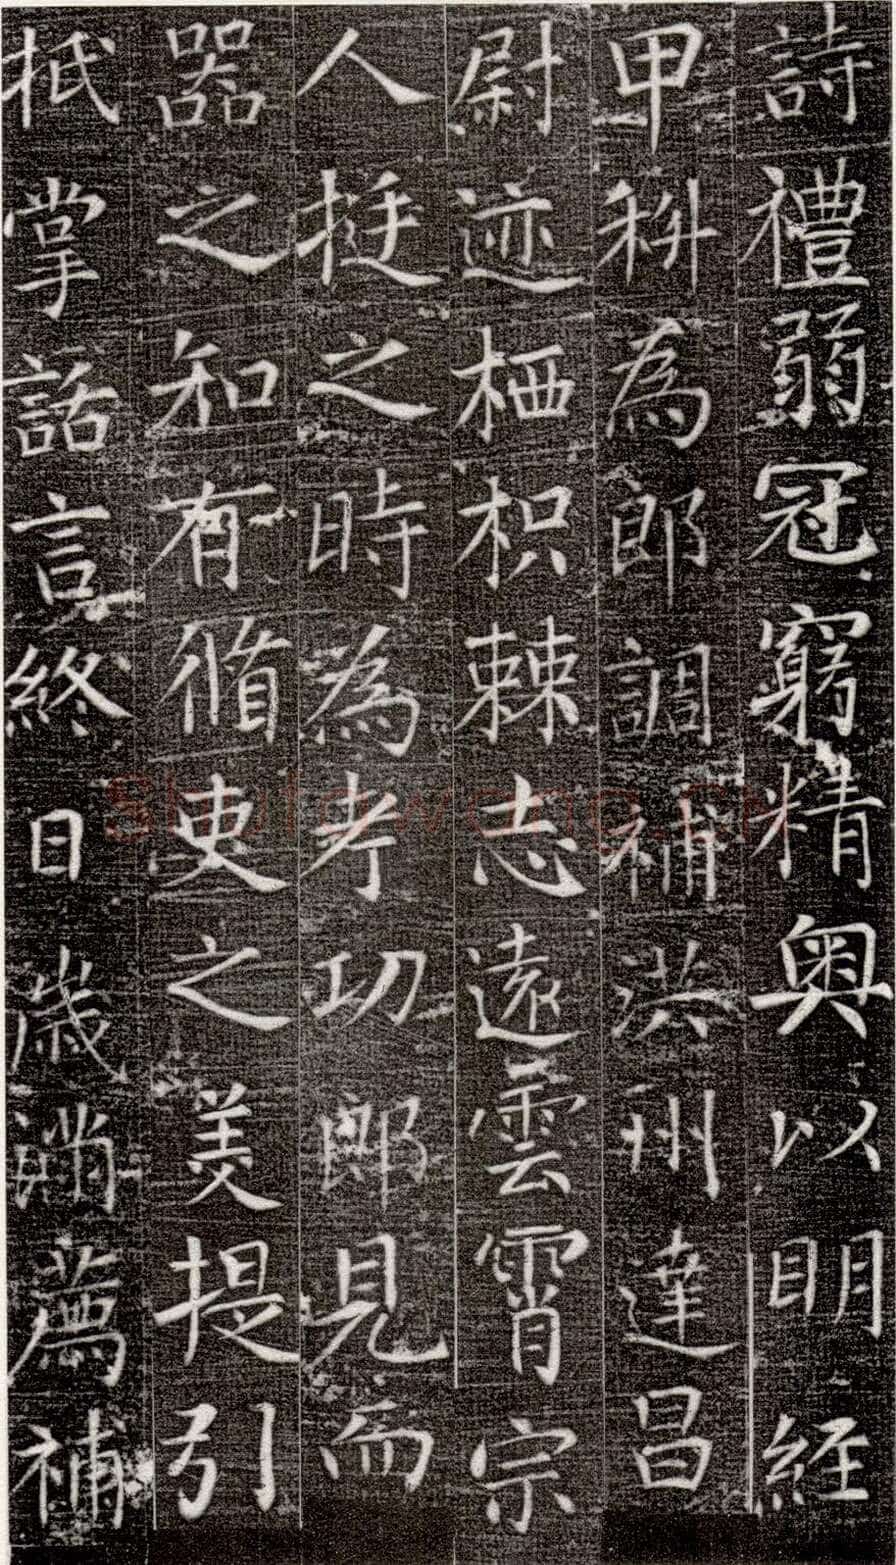 詩禮弱冠窮精奧以明經
甲科為郎調補洪州達昌
尉迹栖枳棘志遠雲霄宗
人挺之時為考功郎見而
器之知有脩吏之美提引
抵掌話言終日歲滿薦補
Shufawang.cn